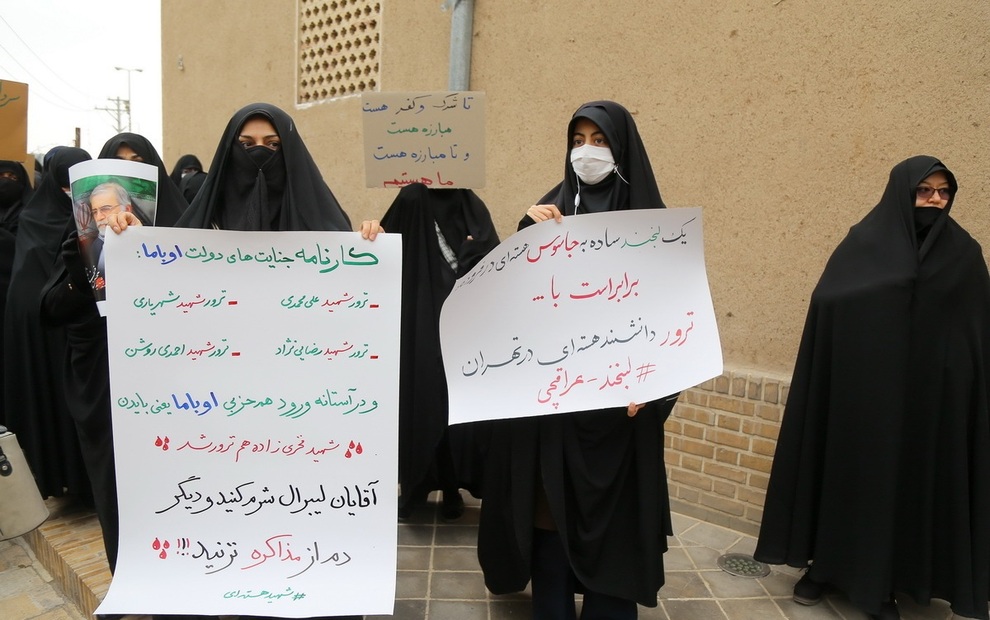 تا شرک و کفر هست
مبارزه هست
و تا مبارزه هست
ما هستیم
کارنامه جنایت های دولت اوباما:
- ترور شهید علیمحمدی
- ترور شهید شهریاری
- ترور شهید رضایی نژاد
- ترور شهید احمدی روشن
و در آستانه ورود هم حزبی اوباما یعنی بایدن
شهید فخری زاده هم ترور شد
آقایان لیبرال شرم کنید و دیگر
دم از مذاکره نزنید!!!
#شهید_هسته_ای
یک لبخند ساده به جاسوس هسته ای در
برابر است با...
ترور دانشمند هسته ای در تهران
#لبخند-عراقچی